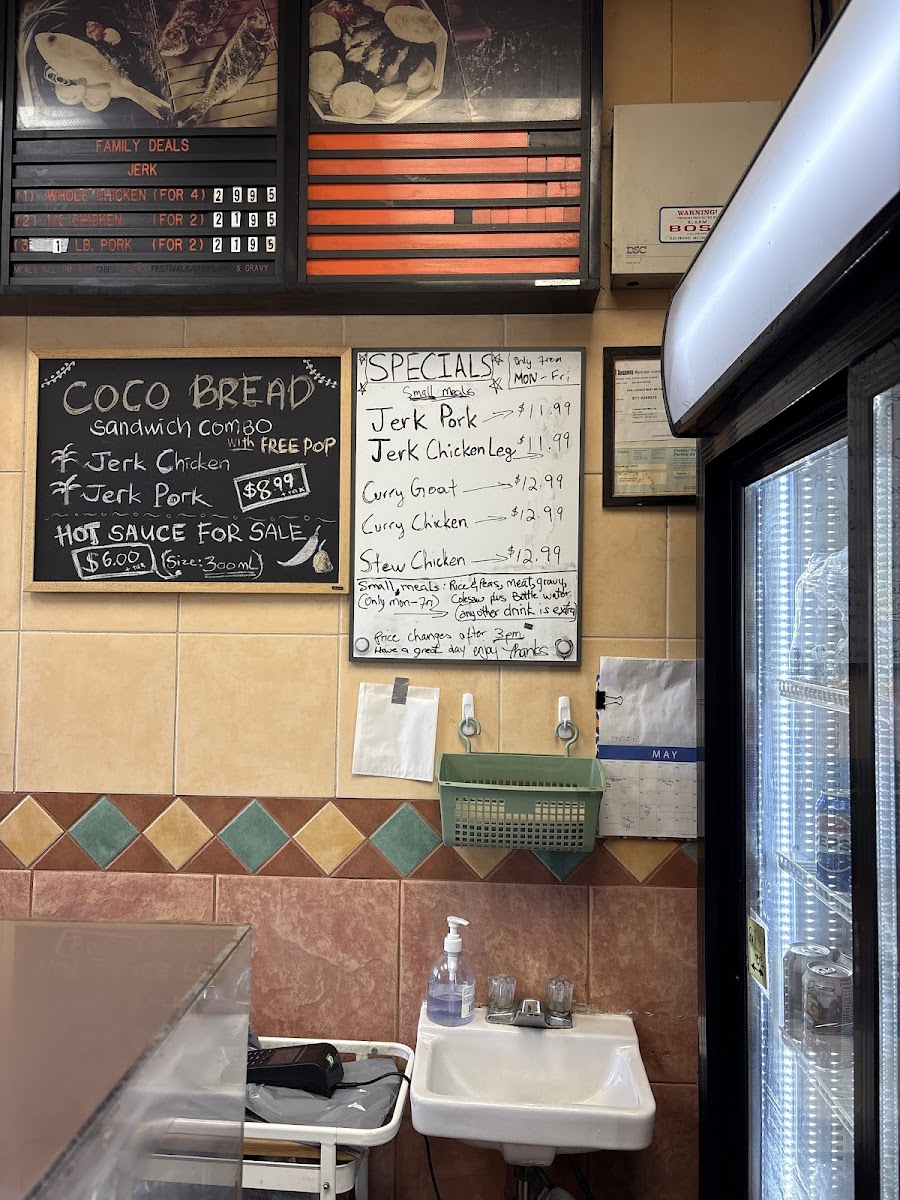 FAMILY DEALS
JERK
(1) WHOLE CHICKEN (FOR 4) 2995
(2) CHICKEN (FOR 2) 2195
(3 1 LB. PORK (FOR 2) 2195
& GRAVY
WARNING!
ALARM
BOS
DSC
COCO BREAD
Sandwich COMBO
with FREE POP
Jerk Chicken
Jerk Pork
$8.99
+ TAX
HOT SAUCE FOR SALE
$6.00 + TAX (Size: 300mL)
SPECIALS
Only from
MON - Fri
Small meals
Jerk Pork $11.99
Jerk Chicken Leg $11.99
Curry Goat $12.99
Curry Chicken $12.99
Stew Chicken $12.99
Small meals: Rice & Peas, meat, gravy,
(Only mon-Fri) Coleslaw plus Bottle water
(any other drink is extra)
Price changes after 3pm
Have a great day enjoy Thanks
Toronto
MAY